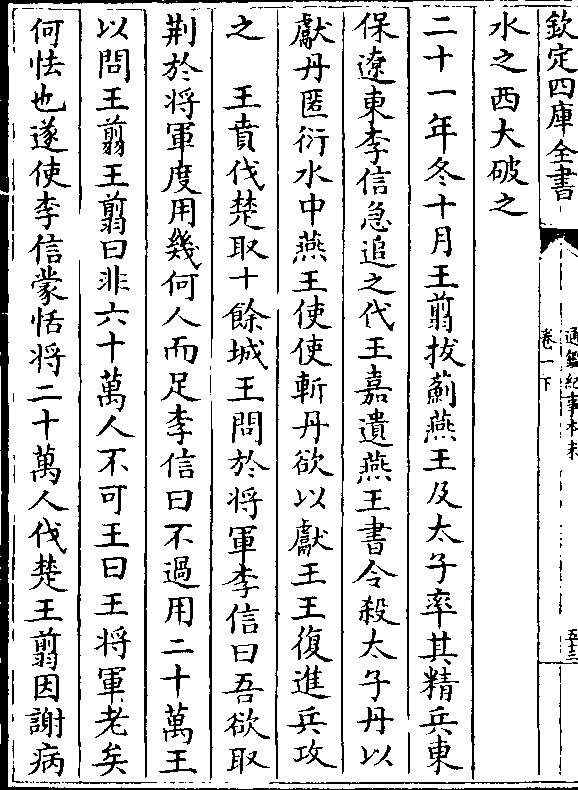 欽定四庫全書
通鑑紀事本末
卷一下
五十三
水之西大破之
二十一年冬十月王翦拔薊燕王及太子率其精兵東
保遼東李信急追之代王嘉遺燕王書令殺太子丹以
獻丹匿衍水中燕王使使斬丹欲以獻王王復進兵攻
之　王賁伐楚取十餘城王問於將軍李信曰吾欲取
荆於將軍度用幾何人而足李信曰不過用二十萬王
以問王翦王翦曰非六十萬人不可王曰王將軍老矣
何怯也遂使李信蒙恬將二十萬人伐楚王翦因謝病